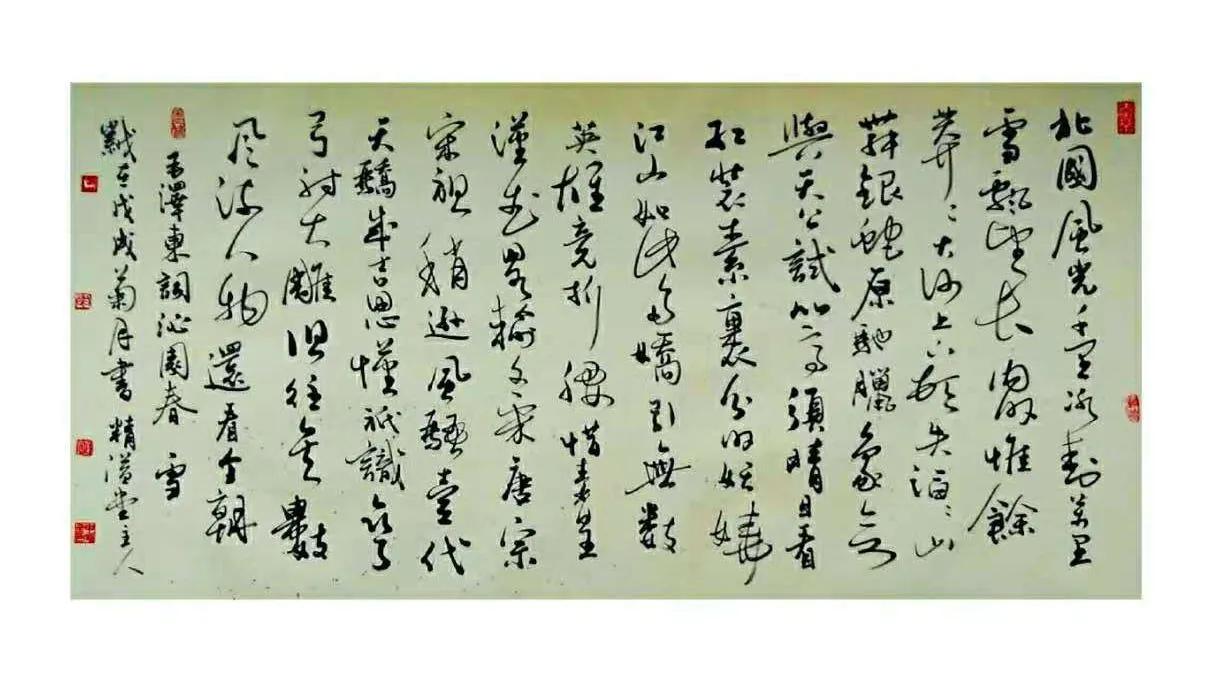 北國風光千里冰封萬里
雪飄望长内外惟餘
莽〻大河上下頓失滔〻山
舞銀蛇原馳臘象欲
與天公試比高須晴日看
红裝素裹分外妖嬈
江山如此多嬌引無數
英雄竞折腰惜秦皇
漢武略輸文采唐宗
宋祖稍遜風騷壹代
天驕成吉思祇識彎
弓射大雕俱往矣數
風流人物還看今朝
毛澤東詞沁園春 雪
歲在戊戌菊月書 精溢堂主人